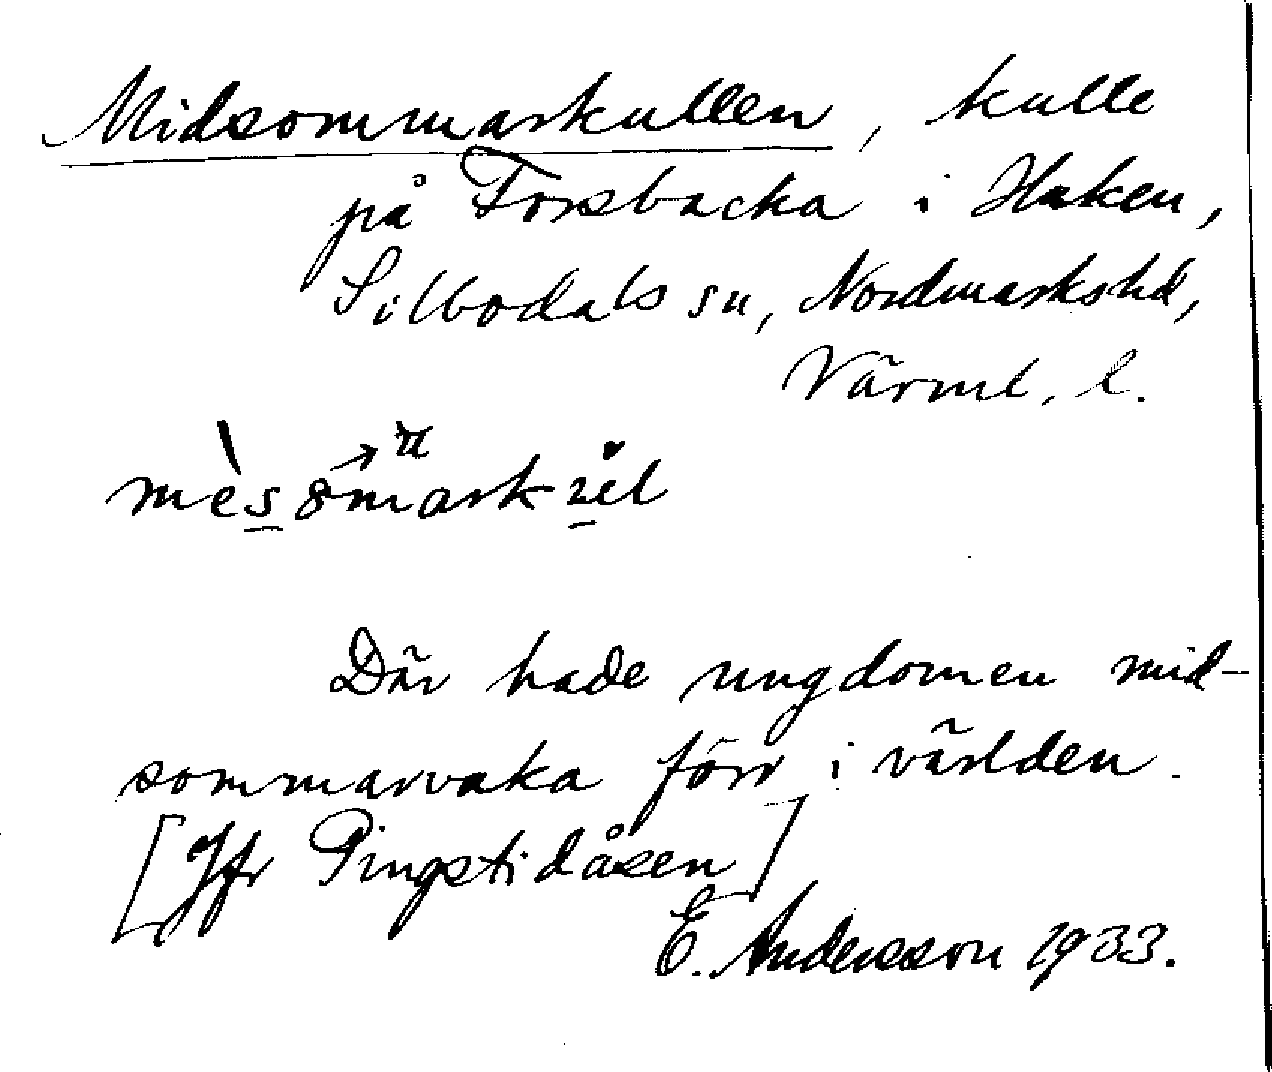 Midsommarkullen, kulle
på Forsbacka i Haken,
Silbodals sn, Nordmarkshd,
Värml. l.
Där hade ungdomen mid-
sommarvaka förr i världen.
[Jfr Pingstidåsen]
E. Andersson 1933.